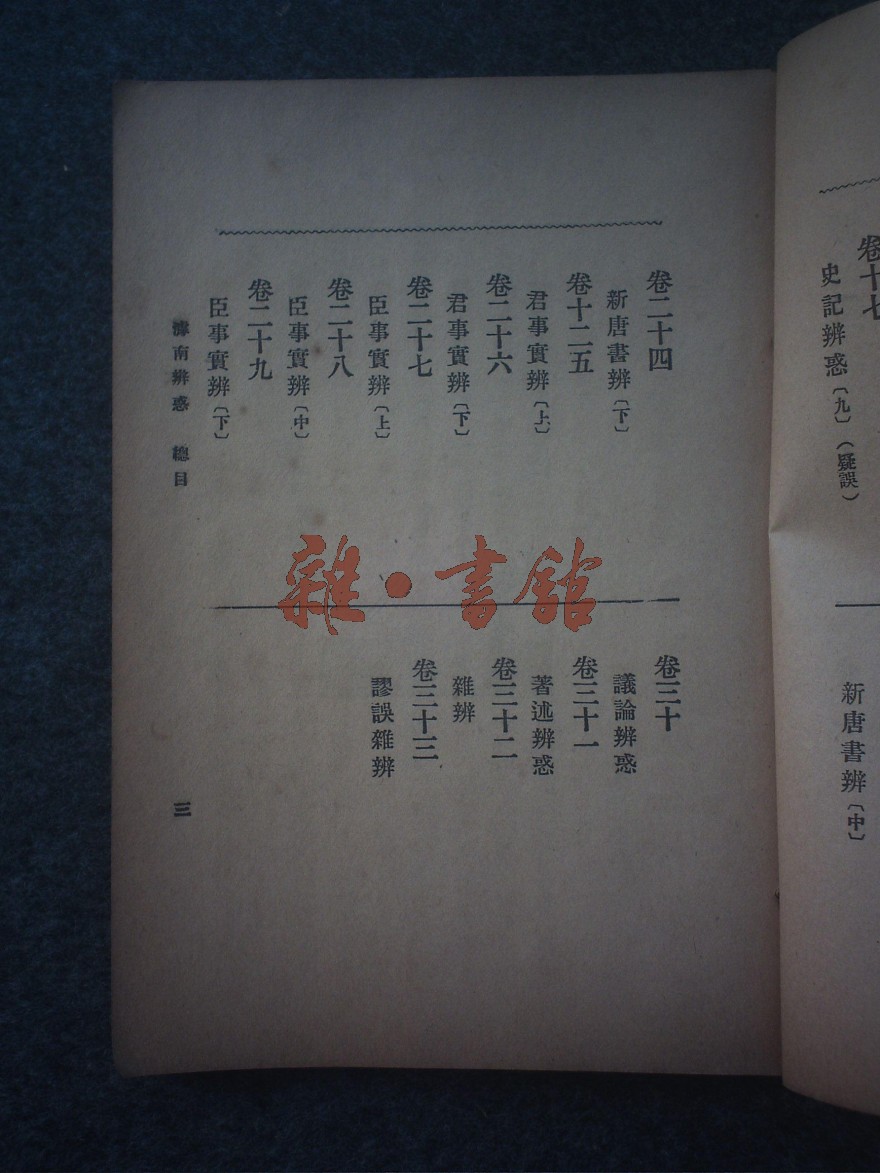 卷十七
史記辨惑〔九〕（疑誤）
新唐書辨〔中〕
卷二十四
新唐書辨〔下〕
卷十二五
君事實辨〔上〕
卷二十六
君事實辨〔下〕
卷二十七
臣事實辨〔上〕
卷二十八
臣事實辨〔中〕
卷二十九
臣事實辨〔下〕
卷三十
議論辨惑
卷三十一
著述辨惑
卷三十二
雜辨
卷三十三
謬誤雜辨
滹南辨惑 總目
三
雜·書館